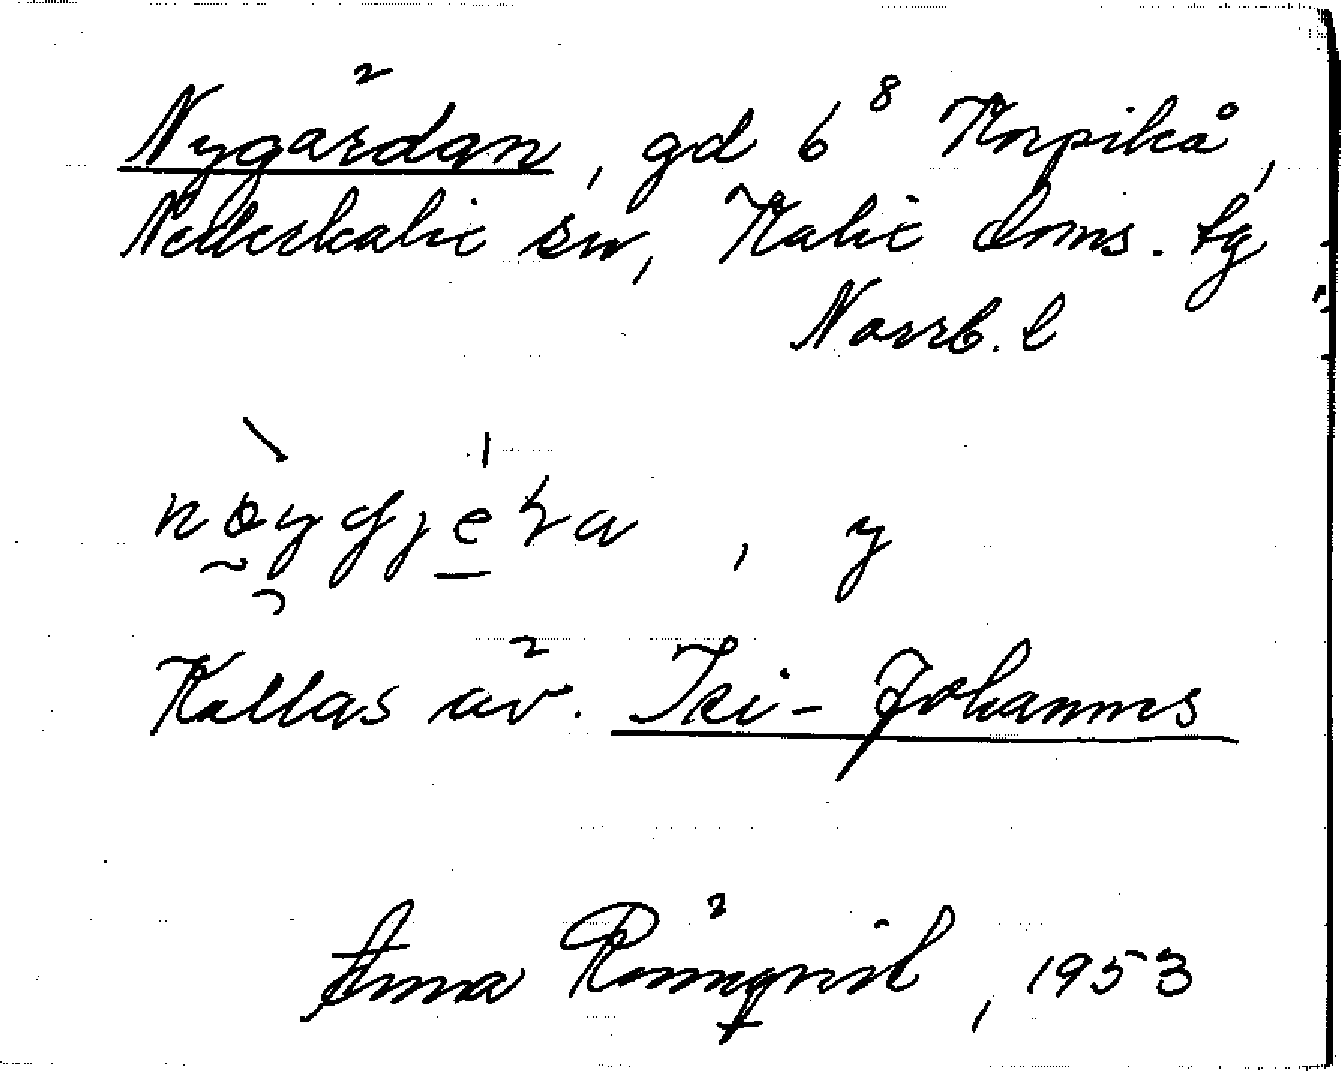 Nygårdan, gd 6⁸ Korpikå,
Nederkalix sn, Kalix doms. tg
Norrb. l
, y
Kallas äv. Iki-Johannes
Anna Rönnqvist, 1953